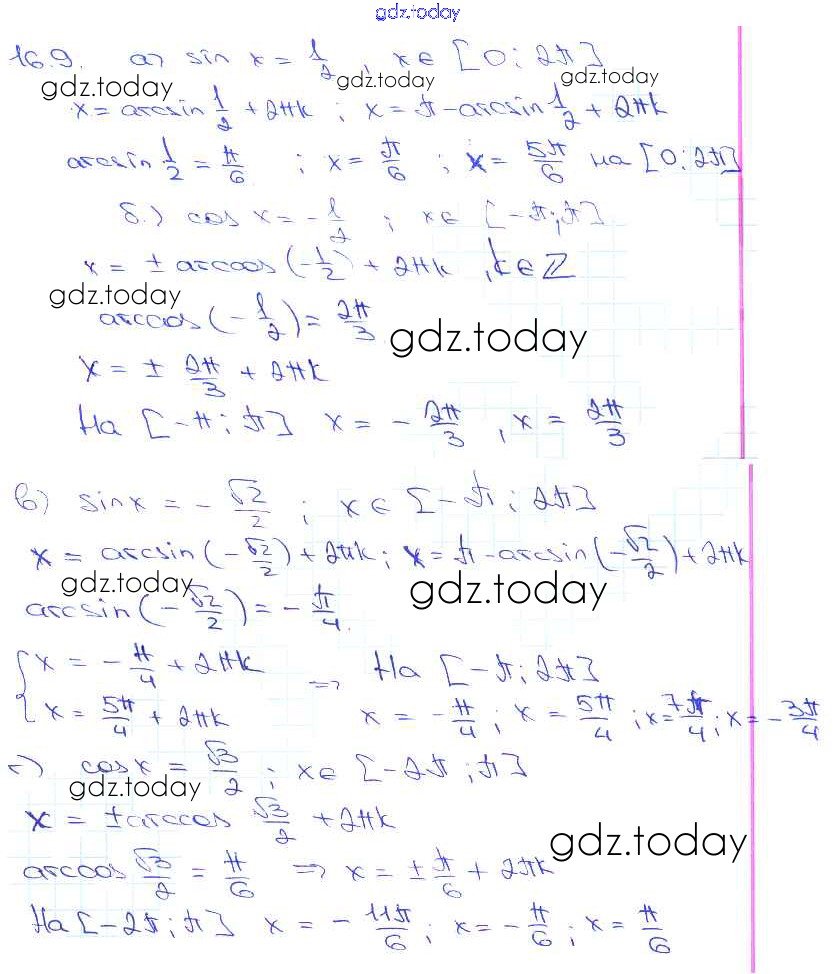 gdz.today
16.9. а) sin x = 1/2 ; x ∈ [0; 2π]
gdz.today gdz.today gdz.today
x = arcsin 1/2 + 2πk ; x = π - arcsin 1/2 + 2πk
arcsin 1/2 = π/6 ; x = π/6 ; x = 5π/6 на [0; 2π]
б.) cos x = -1/2 ; x ∈ [-π; π]
x = ± arccos (-1/2) + 2πk , k ∈ Z
gdz.today
arccos (-1/2) = 2π/3
gdz.today
x = ± 2π/3 + 2πk
На [-π; π] x = - 2π/3 , x = 2π/3
в) sin x = - √2/2 ; x ∈ [-π; 2π]
x = arcsin (-√2/2) + 2πk ; x = π - arcsin (-√2/2) + 2πk
gdz.today gdz.today
arcsin (-√2/2) = - π/4.
{ x = - π/4 + 2πk ⇒ На [-π; 2π]
x = 5π/4 + 2πk x = - π/4 ; x = 5π/4 ; x = 7π/4 ; x = - 3π/4
г) cos x = √3/2 ; x ∈ [-2π; π]
gdz.today
x = ± arccos √3/2 + 2πk
gdz.today
arccos √3/2 = π/6 ⇒ x = ± π/6 + 2πk
На [-2π; π] x = - 11π/6 ; x = - π/6 ; x = π/6